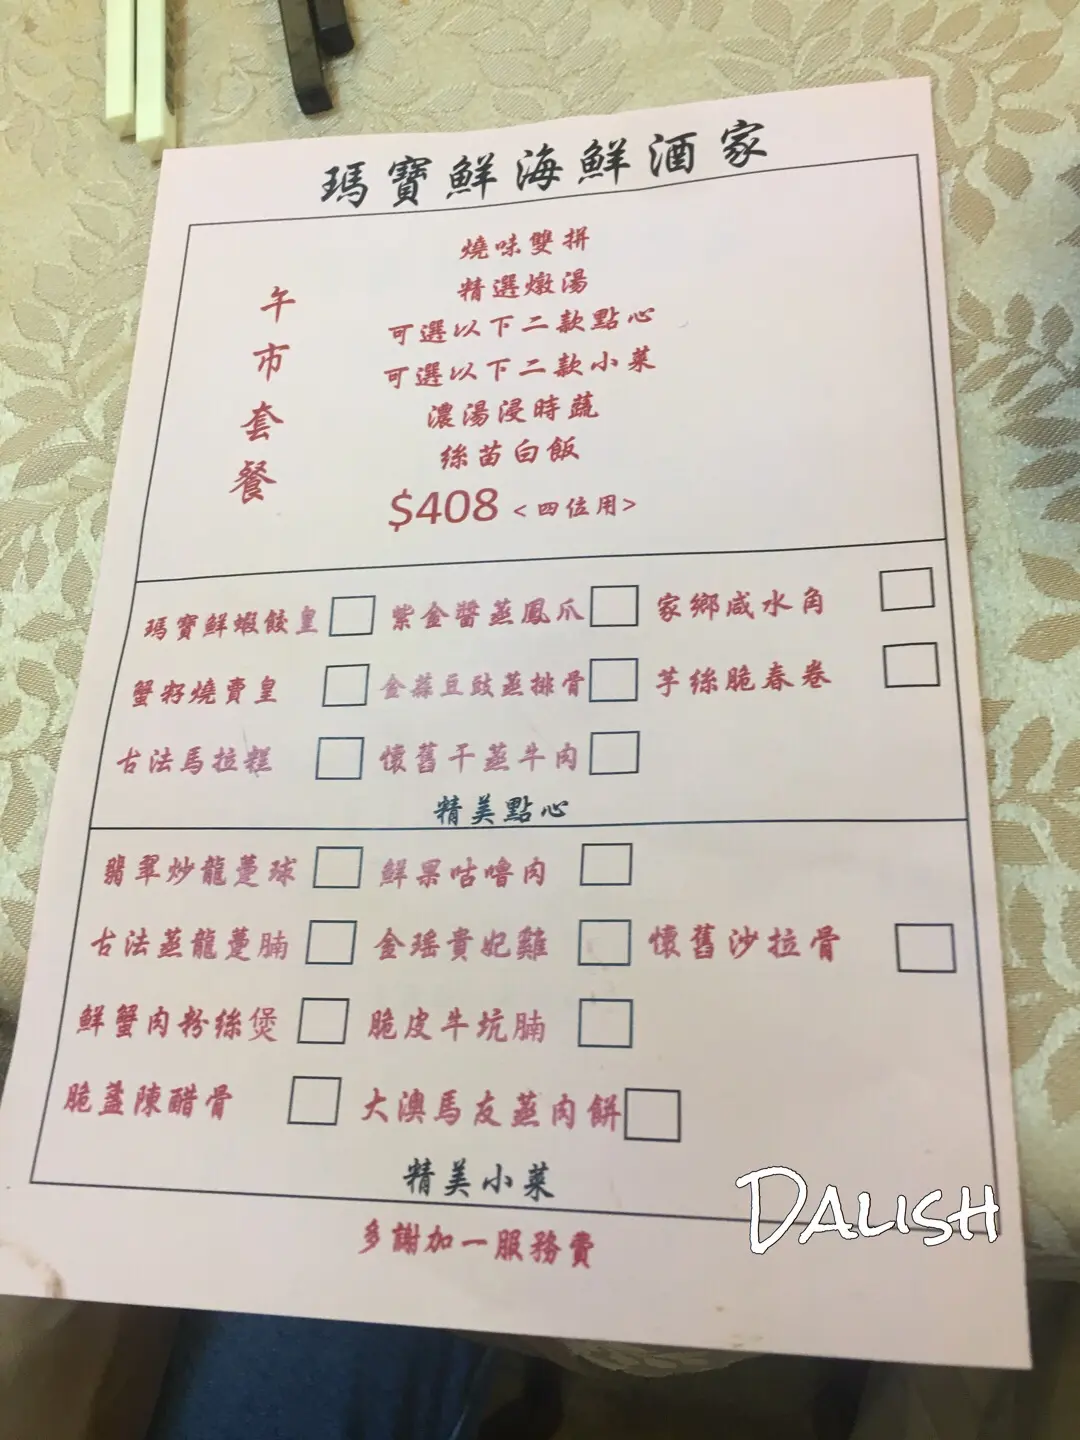 瑪寶鮮海鮮酒家
午市套餐
燒味雙拼
精選燉湯
可選以下二款點心
可選以下二款小菜
濃湯浸時蔬
絲苗白飯
$408 <四位用>
瑪寶鮮蝦餃皇 紫金醬蒸鳳爪 家鄉咸水角
蟹籽燒賣皇 金蒜豆豉蒸排骨 芋絲脆春卷
古法馬拉糕 懷舊干蒸牛肉
精美點心
翡翠炒龍躉球 鮮果咕嚕肉
古法蒸龍躉腩 金瑤貴妃雞 懷舊沙拉骨
鮮蟹肉粉絲煲 脆皮牛坑腩
脆盞陳醋骨 大澳馬友蒸肉餅
精美小菜
多謝加一服務費
DALISH